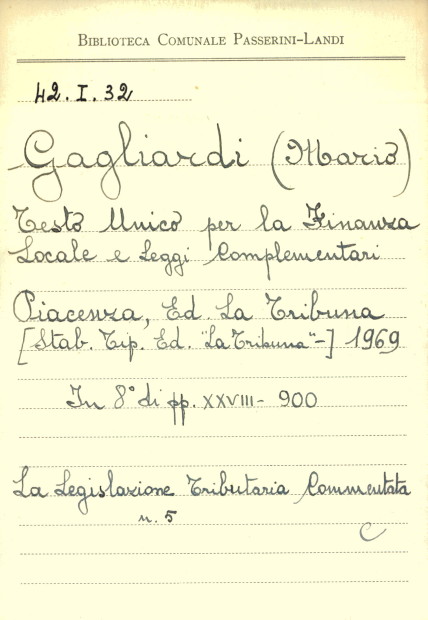 BIBLIOTECA COMUNALE PASSERINI-LANDI
42. I. 32
Gagliardi (Mario)
Testo Unico per la Finanza
Locale e Leggi Complementari
Piacenza, Ed. La Tribuna
[Stab. Tip. Ed. "La Tribuna"-] 1969
In 8° di pp. XXVIII- 900
La Legislazione Tributaria Commentata
n. 5
C